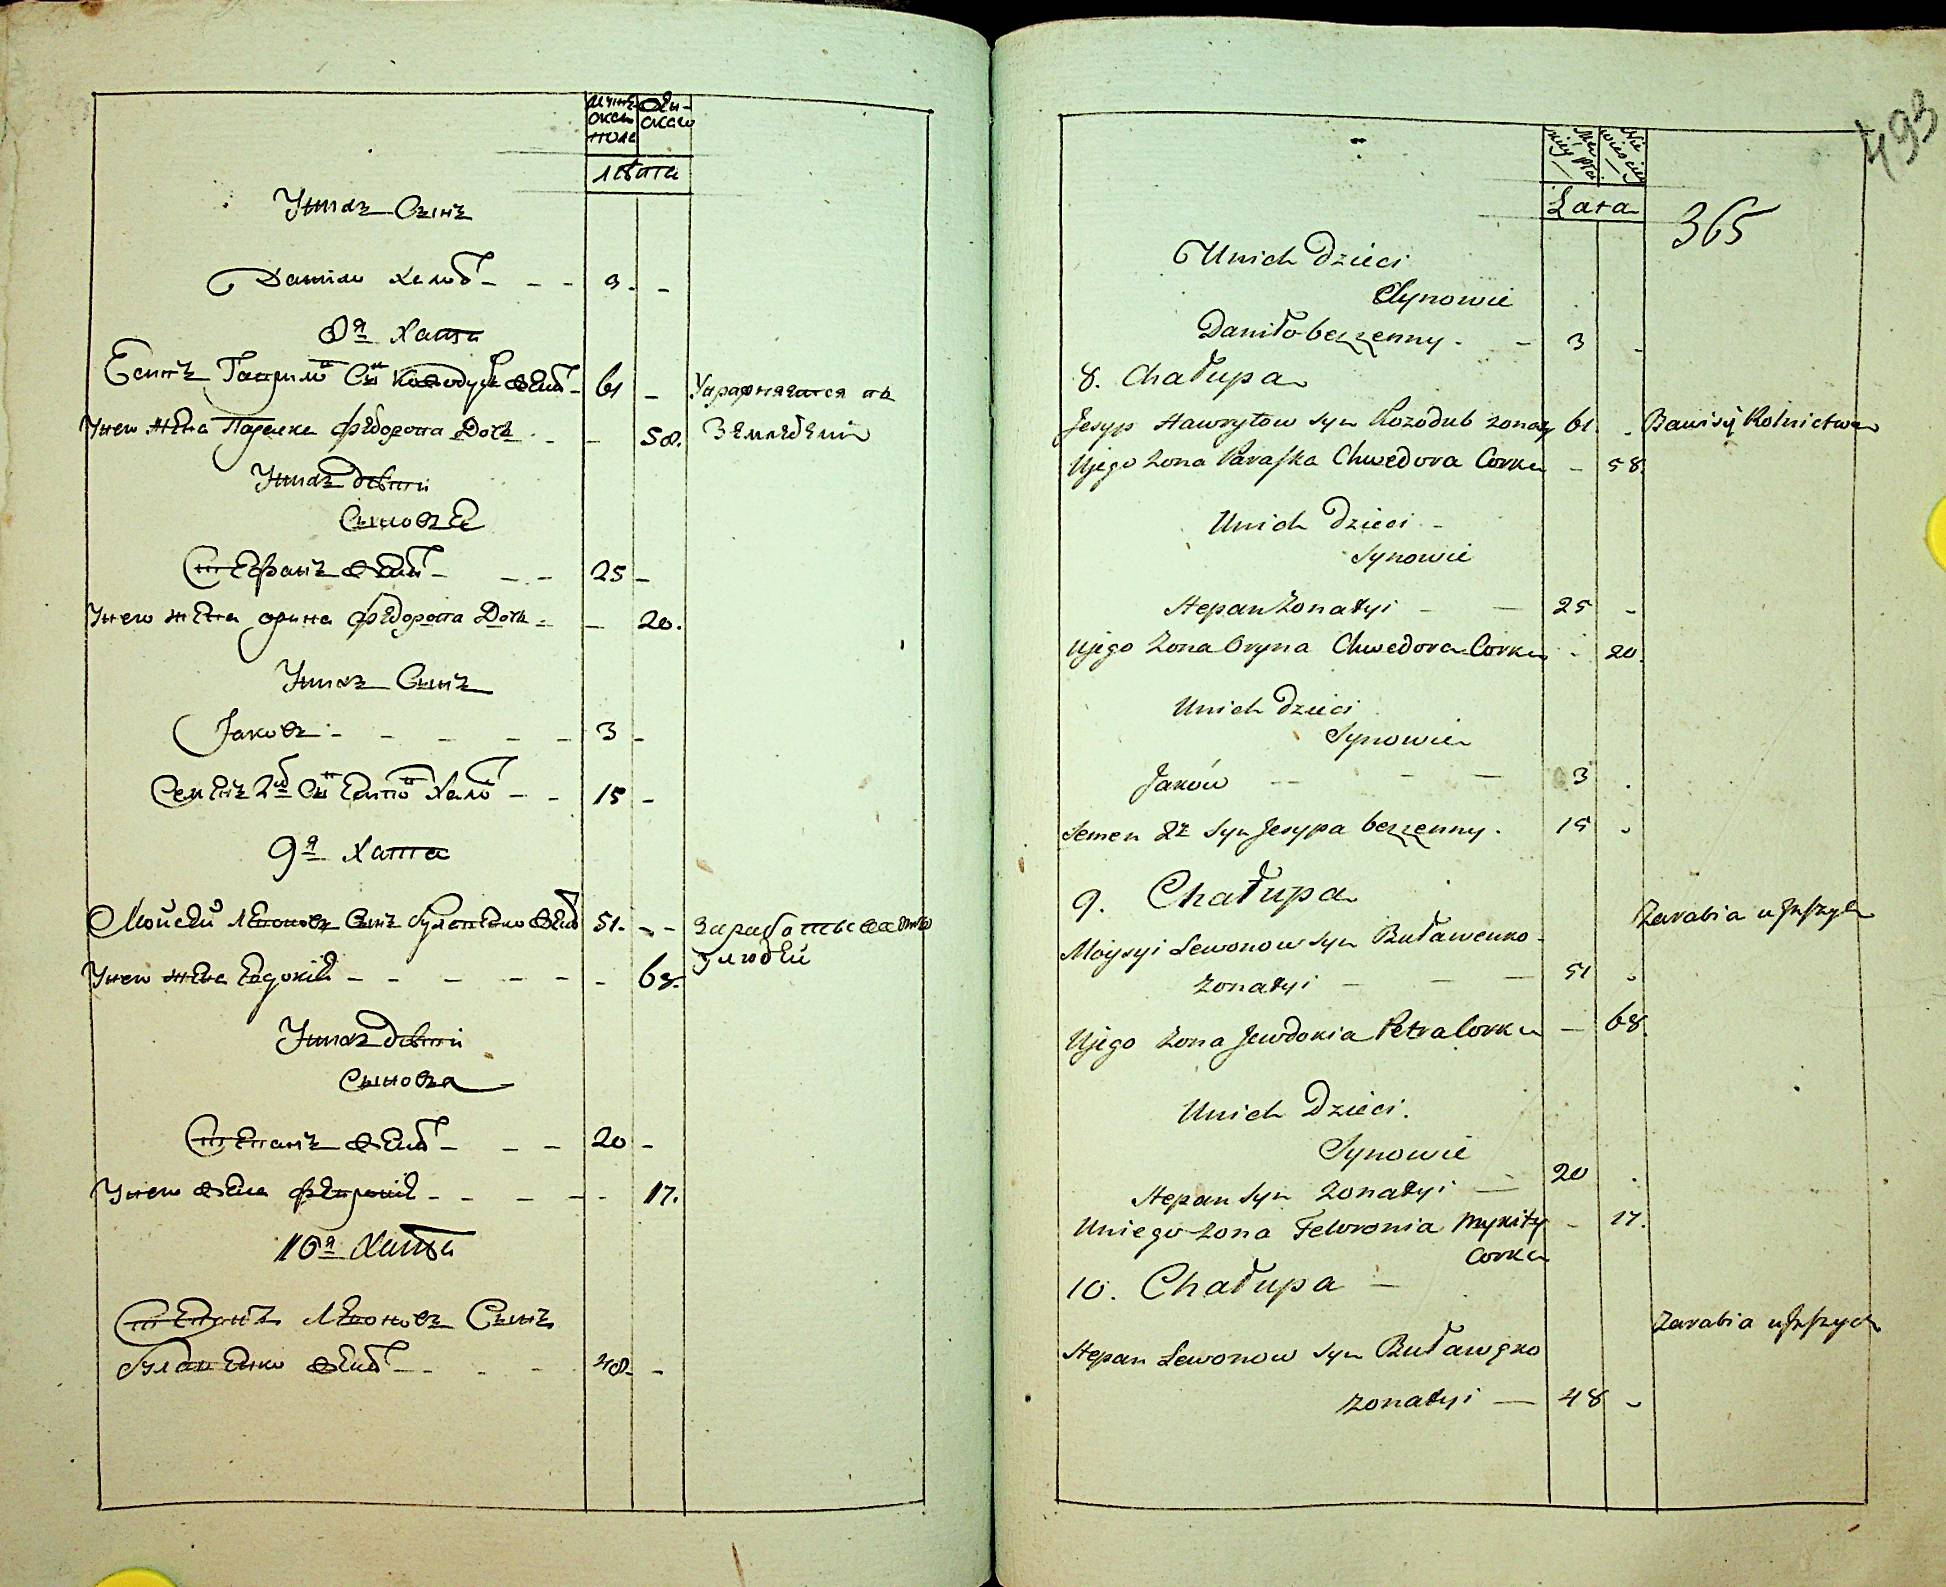 мужеска пола
женскаго
лѣта
У нихъ Сынъ
Данило холос - - - 3. -
8я Хата
Есипъ Гаврилов Сын Козодубъ женат - 61 - Упражняется въ
У него жена Параска Федорова Дочь - - - 58. Земледелии
У нихъ дѣти
Сыновье
Стефанъ женат - - - 25 -
У него жена орина Федорова Дочь - - 20.
У нихъ Сынъ
Яковъ - - - - - 3 -
Семенъ 2й Сын Есипов Холос - - 15 -
9я Хата
Мойсей Левоновъ Сынъ Булавенко женат 51. - - Заработываетъ
У него жена Евдокия - - - - - - 68. у людей
У нихъ дѣти
Сыновья
Степанъ женат - - - 20 -
У него жена Феврония - - - - - 17.
10я Хата
Степанъ Левоновъ Сынъ
Булавенко женат - - - - 48. -
493
Męzkiey płci
Niewieściey
Lata
365
U nich Dzieci
Synowie
Daniło bezzenny. - 3 -
8. Chałupa
Jesyp Hawryłow syn Kozodub zonaty 61. - Bawi się Rolnictwem
U jego zona Paraska Chwedora Corka - 58.
U nich Dzieci -
Synowie
Stepan zonatyi - - 25 -
U jego zona Oryna Chwedora Corka - 20.
U nich Dzieci
Synowie
Jakow - - - 3 .
Semen 2i syn Jesypa bezzenny. 15 -
9. Chałupa
Zarabia u Jnszych
Moysyi Lewonow syn Buławenko -
zonatyi - - - 51 -
U jego zona Jewdokia Petra Corka - 68.
U nich Dzieci.
Synowie
Stepan syn zonatyi - 20 .
U niego zona Fewronia Mykity - 17.
Corka
10. Chałupa -
Zarabia u Jnszych
Stepan Lewonow syn Buławęko
zonatyi - 48 -